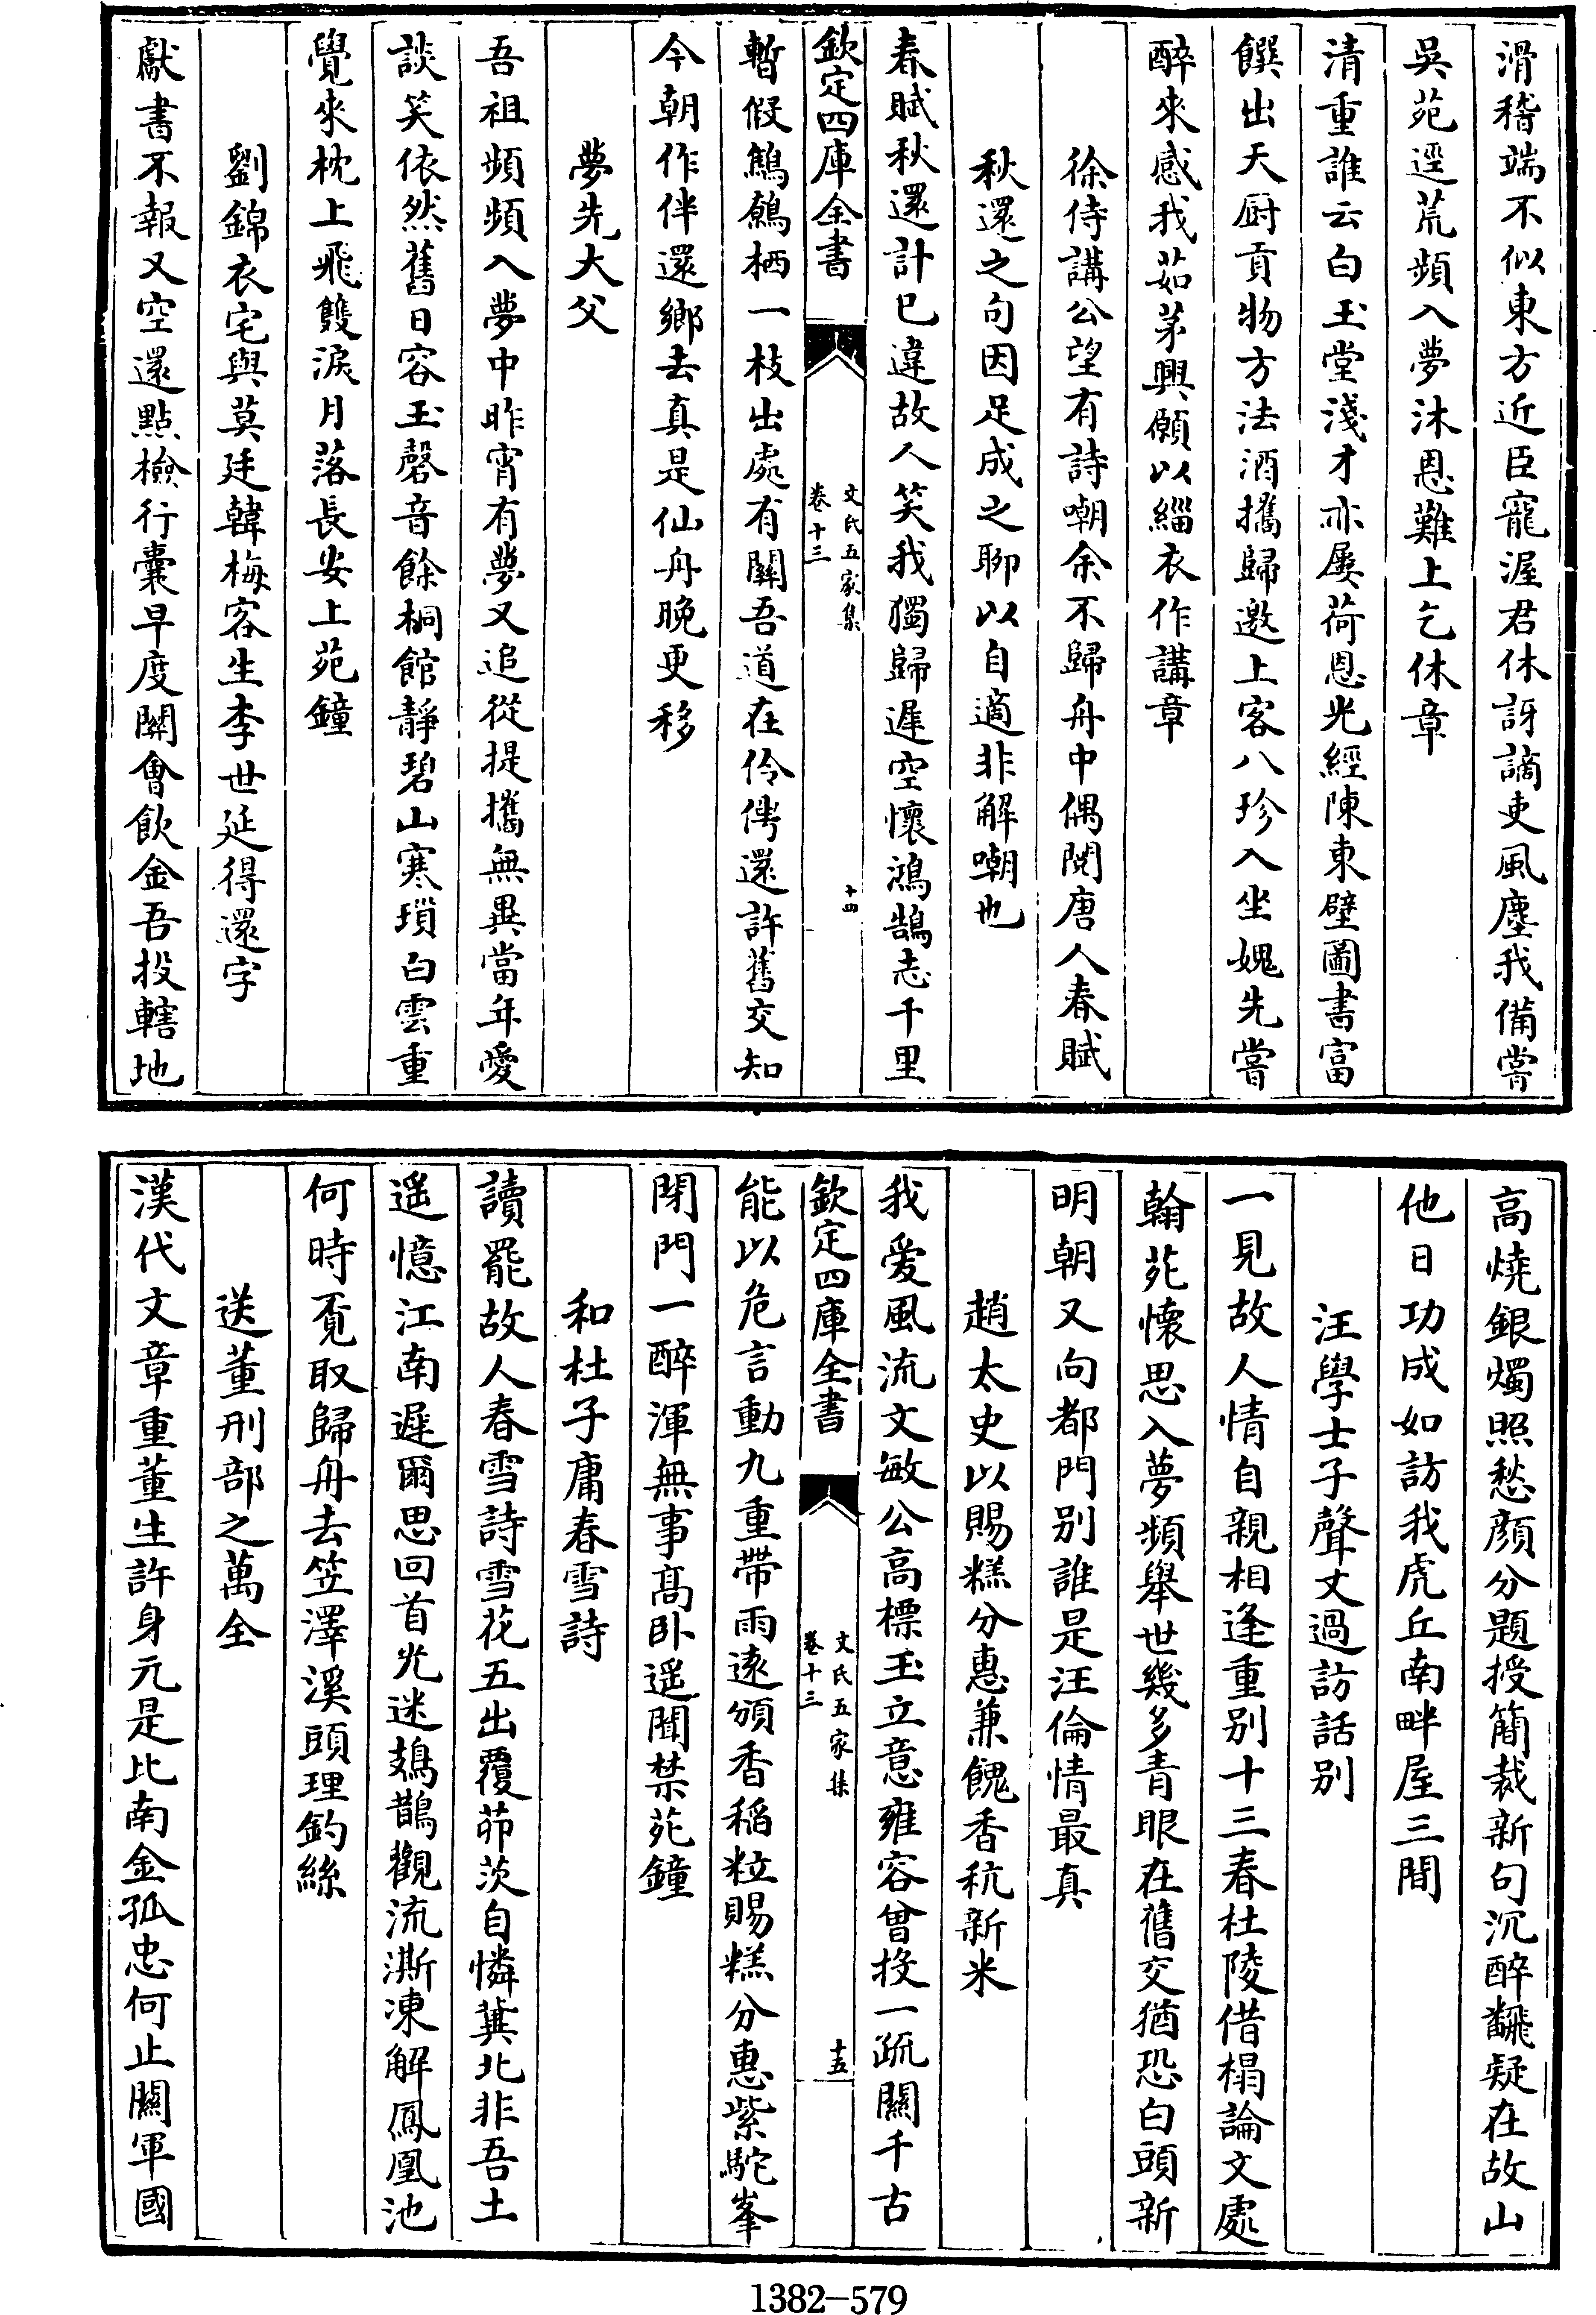 滑稽端不似東方近臣寵渥君休訝謫吏風塵我備嘗
吳苑逕荒頻入夢沐恩難上乞休章
清重誰云白玉堂淺才亦屢荷恩光經陳東壁圖書富
饌出天厨貢物方法酒攜歸邀上客八珍入坐媿先嘗
醉來感我茹茅興願以緇衣作講章
徐侍講公望有詩嘲余不歸舟中偶閱唐人春賦
秋還之句因足成之聊以自適非解嘲也
春賦秋還計已違故人笑我獨歸遲空懷鴻鵠志千里
欽定四庫全書
文氏五家集
卷十三
十四
暫假鷦鷯栖一枝出處有關吾道在伶俜還許舊交知
今朝作伴還鄉去真是仙舟晚更移
夢先大父
吾祖頻頻入夢中昨宵有夢又追從提攜無異當年愛
談笑依然舊日容玉磬音餘桐館靜碧山寒瑣白雲重
覺來枕上飛雙淚月落長安上苑鐘
劉錦衣宅與莫廷韓梅客生李世延得還字
獻書不報又空還點檢行囊早度關會飲金吾投轄地
高燒銀燭照愁顏分題授簡裁新句沉醉飜疑在故山
他日功成如訪我虎丘南畔屋三間
汪學士子聲丈過訪話别
一見故人情自親相逢重别十三春杜陵借榻論文處
翰苑懷思入夢頻舉世幾多青眼在舊交猶恐白頭新
明朝又向都門别誰是汪倫情最真
趙太史以賜糕分惠兼餽香秔新米
我爱風流文敏公高標玉立意雍容曾投一疏關千古
欽定四庫全書
文氏五家集
卷十三
十五
能以危言動九重帶雨遠頒香稻粒賜糕分惠紫駝峯
閉門一醉渾無事髙卧遥聞禁苑鐘
和杜子庸春雪詩
讀罷故人春雪詩雪花五出覆茆茨自憐冀北非吾土
遥憶江南遲爾思回首光迷鳷鵲觀流澌凍解鳳凰池
何時覔取歸舟去笠澤溪頭理釣絲
送董刑部之萬全
漢代文章重董生許身元是比南金孤忠何止關軍國
1382—579